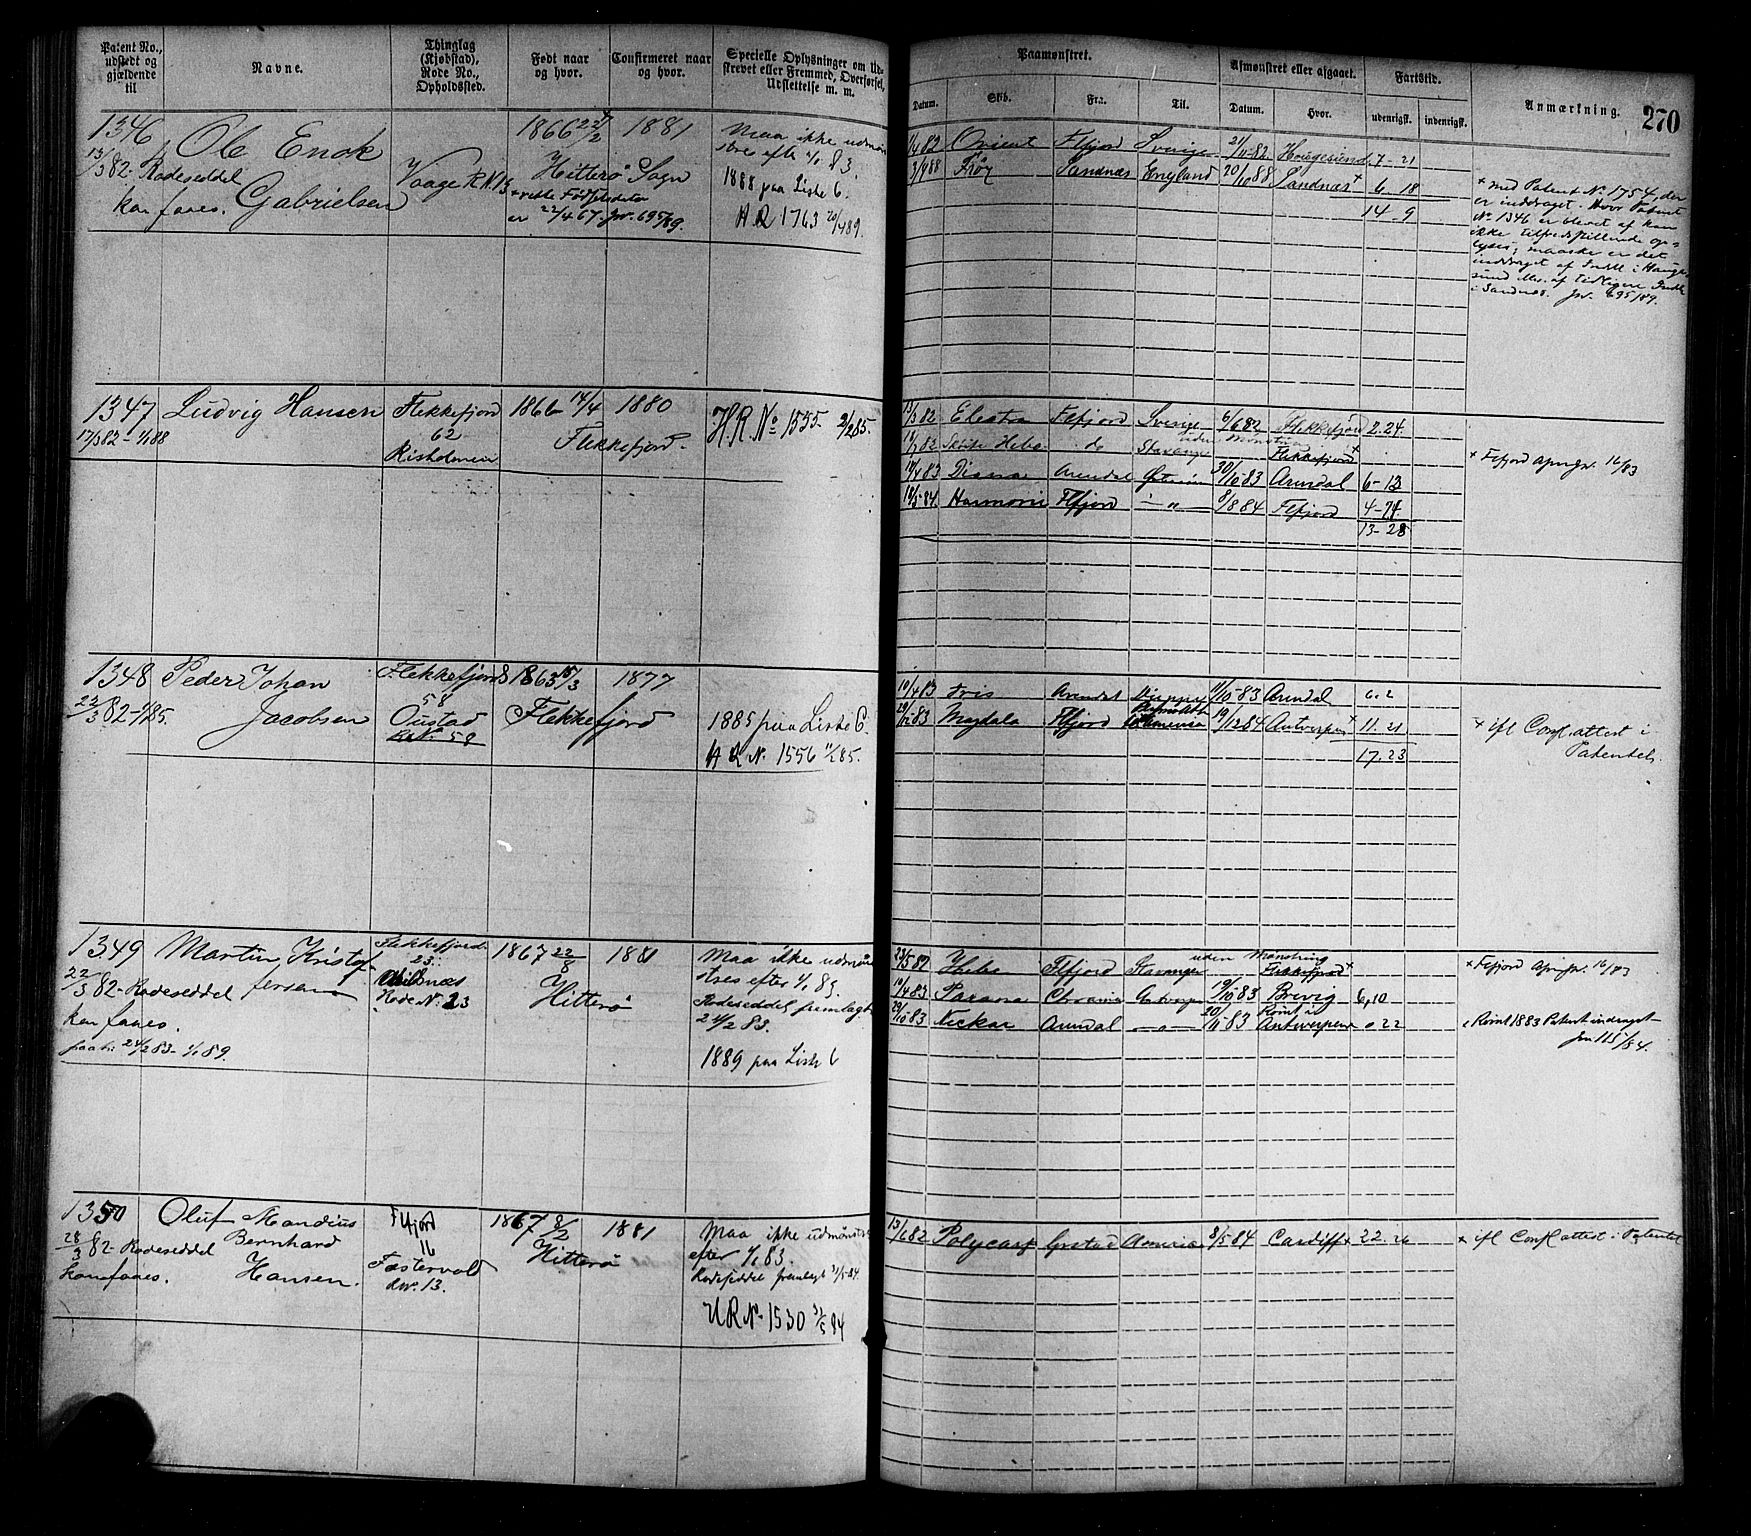 Patent No., udstedt og gjældende til
Navne.
Thinglag (Kjøbstad), Rode No., Opholdssted.
Født naar og hvor.
Confirmeret naar og hvor.
Specielle Oplysninger om Udskrevet eller Fremmed, Overførsel, Udslettelse m. m.
Paamønstret.
Afmønstret eller afgaaet.
Fartstid.
Anmærkning.
270
Datum.
Skib.
Fra.
Til.
Datum.
Hvor.
udenrigsk.
indenrigsk.
1346
13/3 82
Rodeseddel
kan faaes.
Ole Enok
Gabrielsen
Vaage R.N. 13
1866 22/2 1881
Hitterø Sogn
rette Fødselsdato
er 22/4 67. Jr. 695/89.
Maa ikke udmøn
stres efter 1/1 83.
1888 paa Liste C.
H R 1763 20/4 89.
1/4 82 Orient Flfjord Sverige 21/11 82 Hougesund 7-21
3/4 88 Frøy Sandnæs England 20/10 88 Sandnæs + 6-18
14-9
+ med Patent No. 1754, der
er inddraget. Hvor Patent
No. 1346 er blevet af kan
ikke tilfredsstillende op-
lyses, maaske er det
inddraget af Indr. i Hauge
sund ell. af tidligere Indr.
i Sandnæs. Jr. 695/89.
1347
17/3 82 - 1/1 88
Ludvig Hansen
Flekkefjord
62
Risholmen
1866 14/4 1880
Flekkefjord.
H.R. No 1555. 2/2 85.
13/3 82 Electra Flfjord Sverige 6/6 82 Flekkefjord 2.24.
Hebe do Stavanger uden Mønstring Flekkefjord +
14/4 83 Diana Arendal 30/10 83 Arendal 6-13
Harmoni Flfjord -"- 8/8 84 Flfjord
13-28
+ Fefjord Apmjr. 16/83
1348
22/3 82 - 1/1 85.
Peder Johan
Jacobsen
Flekkefjord
58
Oustad
R.N. 58
1863 15/3 1877
Flekkefjord
1885 paa Liste C.
H R N. 1556 85.
10/4 83 Iris Arendal Dieppe 11/10 83 Arendal 6.2
Magdala Flfjord 19/12 84 Antwerpen + 11.21
17.23
+ ifl Conf. attest i
Patentet.
1349
22/3 82 - Rodeseddel
kan faaes.
24/2 83 - 1/1 89.
Martin Kristof
fersen
Flekkefjord
23
Rode N. 23
1867 22/8 1881
Hitterø
Maa ikke udmøn
stres efter 1/1 83.
Rodeseddel fremlagt
24/2 83.
1889 paa Liste C
22/5 82 Hebe Flfjord Stavanger uden Mønstring Flekkefjord +
10/4 83 Parana Antwerpen 19/10 83 Brevig 6,10
29/10 83 Arendal -"- 20/11 83 Rømt i Antwerpen 0 22
+ Fefjord Apmjr. 16/83
Rømt 1883 Patent inddraget
jnr 115/84.
1350
28/3 82 - Rodeseddel
kan faaes.
Oluf Mandius
Bernhard
Hansen.
Flfjord
16
Fastervold
R.N. 13.
1867 8/2 1881
Hitterø
Maa ikke udmønst.
efter 1/1 83.
Rodeseddel fremlagt 31/5 84.
H R N. 1530 31/5 84
13/6 82 Polycarp Grstad America 8/5 84 Cardiff + 22.26
+ ifl Conf. attest i Patentet